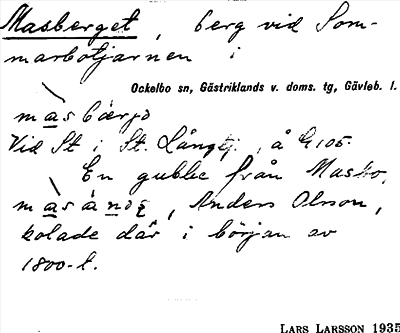 Masberget, berg vid Som-
marbotjärnen i
Ockelbo sn, Gästriklands v. doms. tg, Gävleb. l.
Vid St i St. Långtj., å G 105.
En gubbe från Masbo,
Anders Olsson,
kolade där i början av
1800-t.
LARS LARSSON 1935